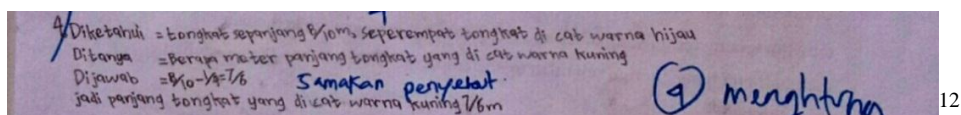 4. Diketahui = tongkat sepanjang 8/10m, seperempat tongkat di cat warna hijau
Ditanya = Berapa meter panjang tongkat yang di cat warna kuning
Dijawab = 8/10-1/4=7/6 Samakan penyebut.
jadi panjang tongkat yang di cat warna kuning 7/6 m
4 menghitung
12